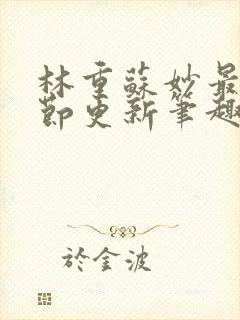 林重蘇妙最
節更新筆趣
於金波